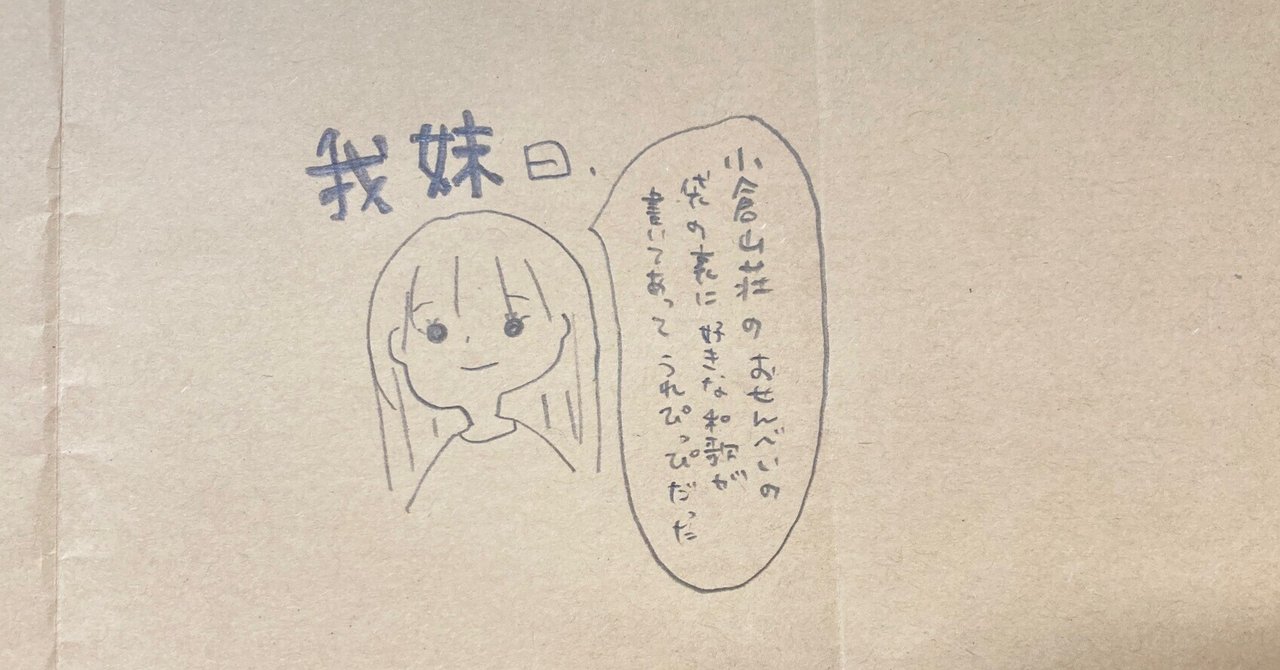 我妹曰.
小倉山荘のおせんべいの
袋の表に好きな和歌が
書いてあってうれぴっぴだった